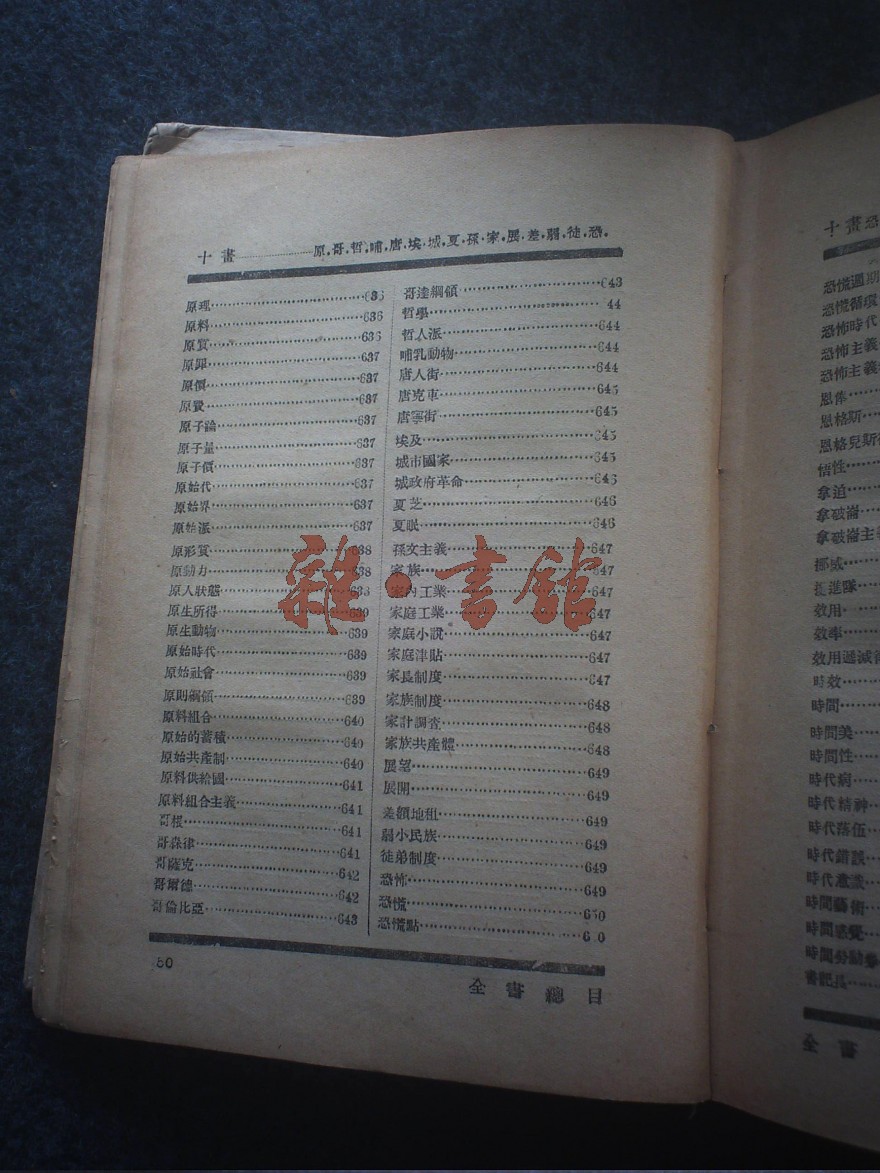 十畫……原,哥,哲,哺,唐,埃,城,夏,孫,家,展,差,弱,徒,恐.
原理……636
原料……636
原質……636
原罪……637
原價……637
原費……637
原子論……637
原子量……637
原子價……637
原始代……637
原始界……637
原始派……637
原形質……638
原動力……638
原人狀態……638
原生所得……639
原生動物……639
原始時代……639
原始社會……639
原則綱領……639
原料組合……640
原始的蓄積……640
原始共產制……640
原料供給國……641
原料組合主義……641
哥根……641
哥森律……641
哥薩克……642
哥爾德……642
哥倫比亞……643
哥達綱領……643
哲學……44
哲人派……644
哺乳動物……644
唐人街……644
唐克車……645
唐寧街……645
埃及……645
城市國家……645
城政府革命……646
夏芝……646
夏眠……646
孫文主義……647
家族……647
家內工業……647
家庭工業……647
家庭小說……647
家庭津貼……647
家長制度……647
家族制度……648
家計調查……648
家族共產體……648
展望……649
展開……649
差額地租……649
弱小民族……649
徒弟制度……649
恐怖……649
恐慌……650
恐慌點……6 0
60
全書總目
雜·書館
十畫恐
恐慌週期
恐慌循環
恐怖時代
恐怖主義
恐怖主義
恩俸……
恩格斯……
恩格兒斯
悟性……
拿迫……
拿破崙……
拿破崙主
挪威……
挺進隊……
效用……
效率……
效用遞減
時效……
時間……
時間美……
時間性……
時代病……
時代精神……
時代落伍……
時代錯誤……
時代意識……
時間藝術……
時間感覺……
時間勞動
書記長……
全書